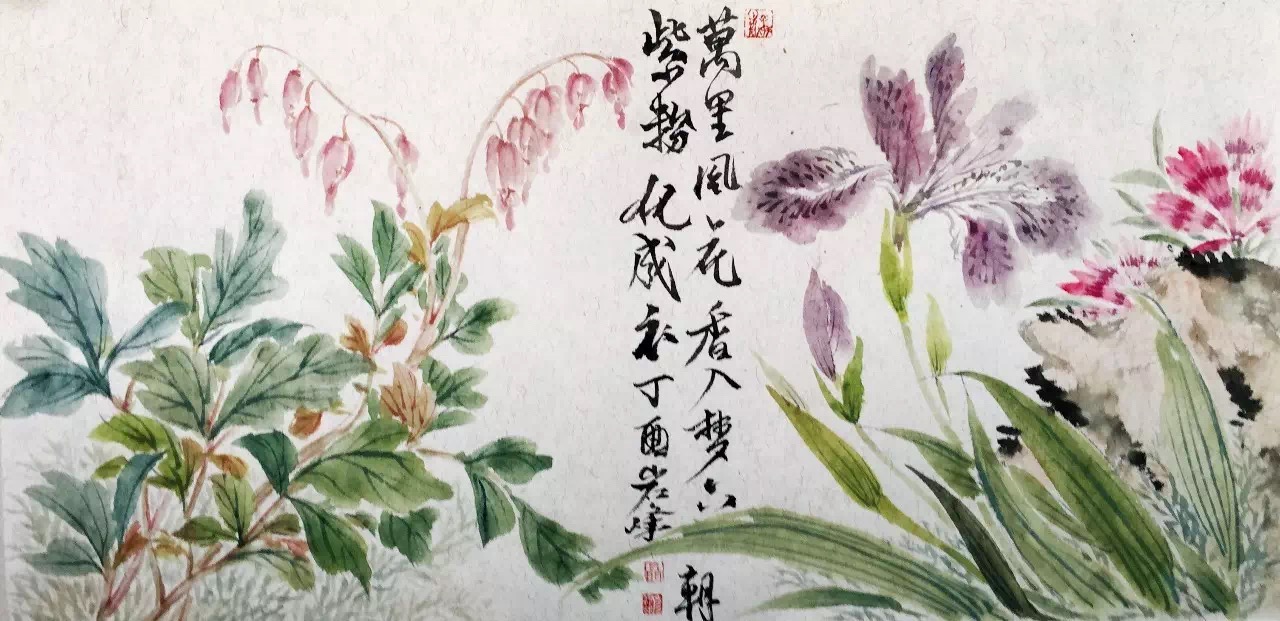 萬里風花香入夢六朝
紫粉化成衣丁酉岩